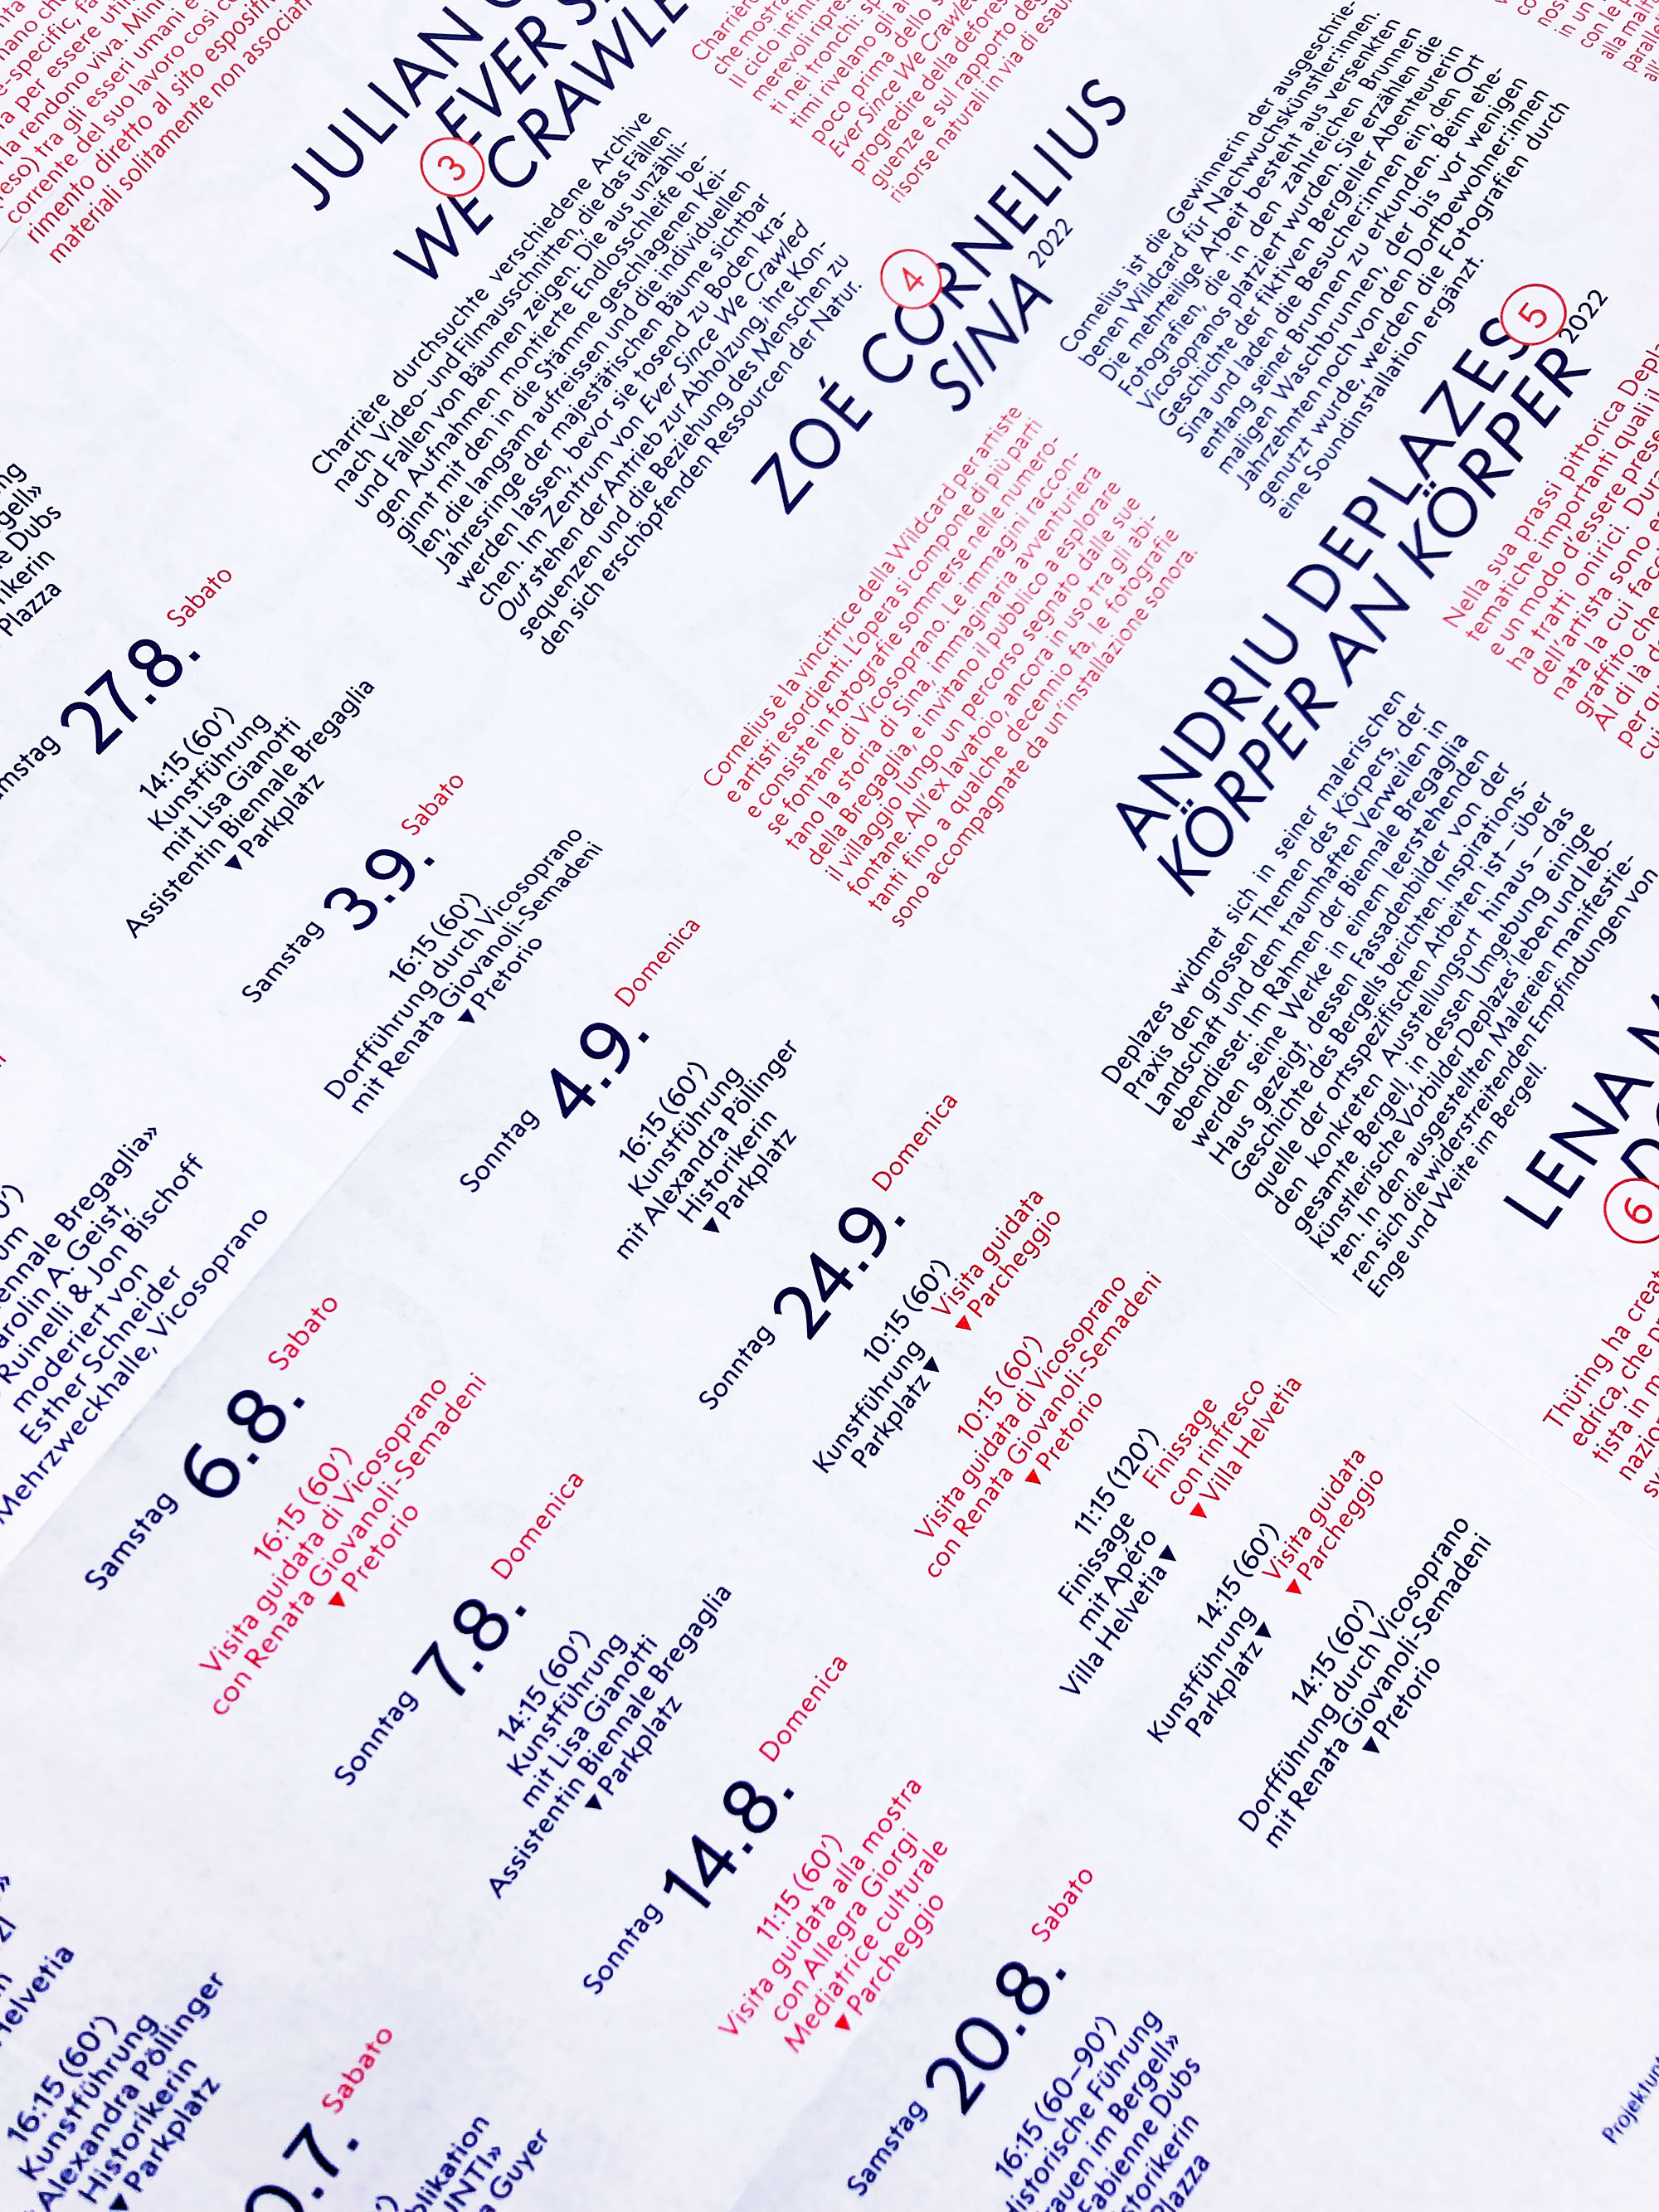 per essere
la rendono viva.
tra gli esseri umani e
corrente del suo lavoro così
rimento diretto al sito
materiali solitamente non
JULIAN
EVER
WE
3
Charrière durchsuchte verschiedene Archive
nach Video- und Filmausschnitten, die das Fällen
und Fallen von Bäumen zeigen. Die aus unzähli-
gen Aufnahmen montierte Endlosschleife be-
ginnt mit den in die Stämme geschlagenen Kei-
len, die langsam aufreissen und die individuellen
Jahresringe der majestätischen Bäume sichtbar
werden lassen, bevor sie tosend zu Boden kra-
chen. Im Zentrum von Ever Since We Crawled
Out stehen der Antrieb zur Abholzung, ihre Kon-
sequenzen und die Beziehung des Menschen zu
den sich erschöpfenden Ressourcen der Natur.
che mostra
Il ciclo
ti nei tronchi:
timi rivelano gli
poco prima dello
Ever Since We
progredire della
guenze e sul rapporto
risorse naturali in via di
ZOÉ CORNELIUS
4
SINA 2022
Cornelius ist die Gewinnerin der ausgeschrie-
benen Wildcard für Nachwuchskünstlerinnen.
Die mehrteilige Arbeit besteht aus versenkten
Fotografien, die in den zahlreichen Brunnen
Vicosopranos platziert wurden. Sie erzählen die
Geschichte der fiktiven Bergeller Abenteurerin
Sina und laden die Besucher:innen ein, den Ort
entlang seiner Brunnen zu erkunden. Beim ehe-
maligen Waschbrunnen, der bis vor wenigen
Jahrzehnten noch von den Dorfbewohner:innen
genutzt wurde, werden die Fotografien durch
eine Soundinstallation ergänzt.
Cornelius è la vincitrice della Wildcard per artiste
e artisti esordienti. L'opera si compone di più parti
e consiste in fotografie sommerse nelle numero-
se fontane di Vicosoprano. Le immagini raccon-
tano la storia di Sina, immaginaria avventuriera
della Bregaglia, e invitano il pubblico a esplorare
il villaggio lungo un percorso segnato dalle sue
fontane. All'ex lavatoio, ancora in uso tra gli abi-
tanti fino a qualche decennio fa, le fotografie
sono accompagnate da un'installazione sonora.
ANDRIU DEPLAZES
5
KÖRPER AN KÖRPER 2022
Deplazes widmet sich in seiner malerischen
Praxis den grossen Themen des Körpers, der
Landschaft und dem traumhaften Verweilen in
ebendieser. Im Rahmen der Biennale Bregaglia
werden seine Werke in einem leerstehenden
Haus gezeigt, dessen Fassadenbilder von der
Geschichte des Bergells berichten. Inspirations-
quelle der ortsspezifischen Arbeiten ist – über
den konkreten Ausstellungsort hinaus – das
gesamte Bergell, in dessen Umgebung einige
künstlerische Vorbilder Deplazes' leben und leb-
ten. In den ausgestellten Malereien manifestie-
ren sich die widerstreitenden Empfindungen von
Enge und Weite im Bergell.
Nella sua prassi pittorica
tematiche importanti quali il
e un modo d'essere
ha tratti onirici.
dell'artista sono
nata la cui
graffito che
Al di là
LENA
6
Thüring ha
edrica, che
tista in
Dubs
Plazza
27.8. Sabato
14:15 (60′)
Kunstführung
mit Lisa Gianotti
Assistentin Biennale Bregaglia
▼ Parkplatz
Samstag 3.9. Sabato
16:15 (60′)
Dorfführung durch Vicosoprano
mit Renata Giovanoli-Semadeni
▼ Pretorio
Sonntag 4.9. Domenica
16:15 (60′)
Kunstführung
mit Alexandra Pöllinger
Historikerin
▼ Parkplatz
Sonntag 24.9. Domenica
10:15 (60′)
Kunstführung Visita guidata
Parkplatz ▼ ▼ Parcheggio
10:15 (60′)
Visita guidata di Vicosoprano
con Renata Giovanoli-Semadeni
▼ Pretorio
11:15 (120′)
Finissage Finissage
mit Apéro con rinfresco
Villa Helvetia ▼ ▼ Villa Helvetia
14:15 (60′)
Kunstführung Visita guidata
Parkplatz ▼ ▼ Parcheggio
14:15 (60′)
Dorfführung durch Vicosoprano
mit Renata Giovanoli-Semadeni
▼ Pretorio
Bregaglia»
A. Geist,
Ruinelli & Jon Bischoff
moderiert von
Esther Schneider
Mehrzweckhalle, Vicosoprano
Samstag 6.8. Sabato
16:15 (60′)
Visita guidata di Vicosoprano
con Renata Giovanoli-Semadeni
▼ Pretorio
Sonntag 7.8. Domenica
14:15 (60′)
Kunstführung
mit Lisa Gianotti
Assistentin Biennale Bregaglia
▼ Parkplatz
Sonntag 14.8. Domenica
11:15 (60′)
Visita guidata alla mostra
con Allegra Giorgi
Mediatrice culturale
▼ Parcheggio
Samstag 20.8. Sabato
16:15 (60–90′)
Führung
im Bergell»
Fabienne Dubs
16:15 (60′)
Kunstführung
Alexandra Pöllinger
Historikerin
▼ Parkplatz
Sabato
Guyer